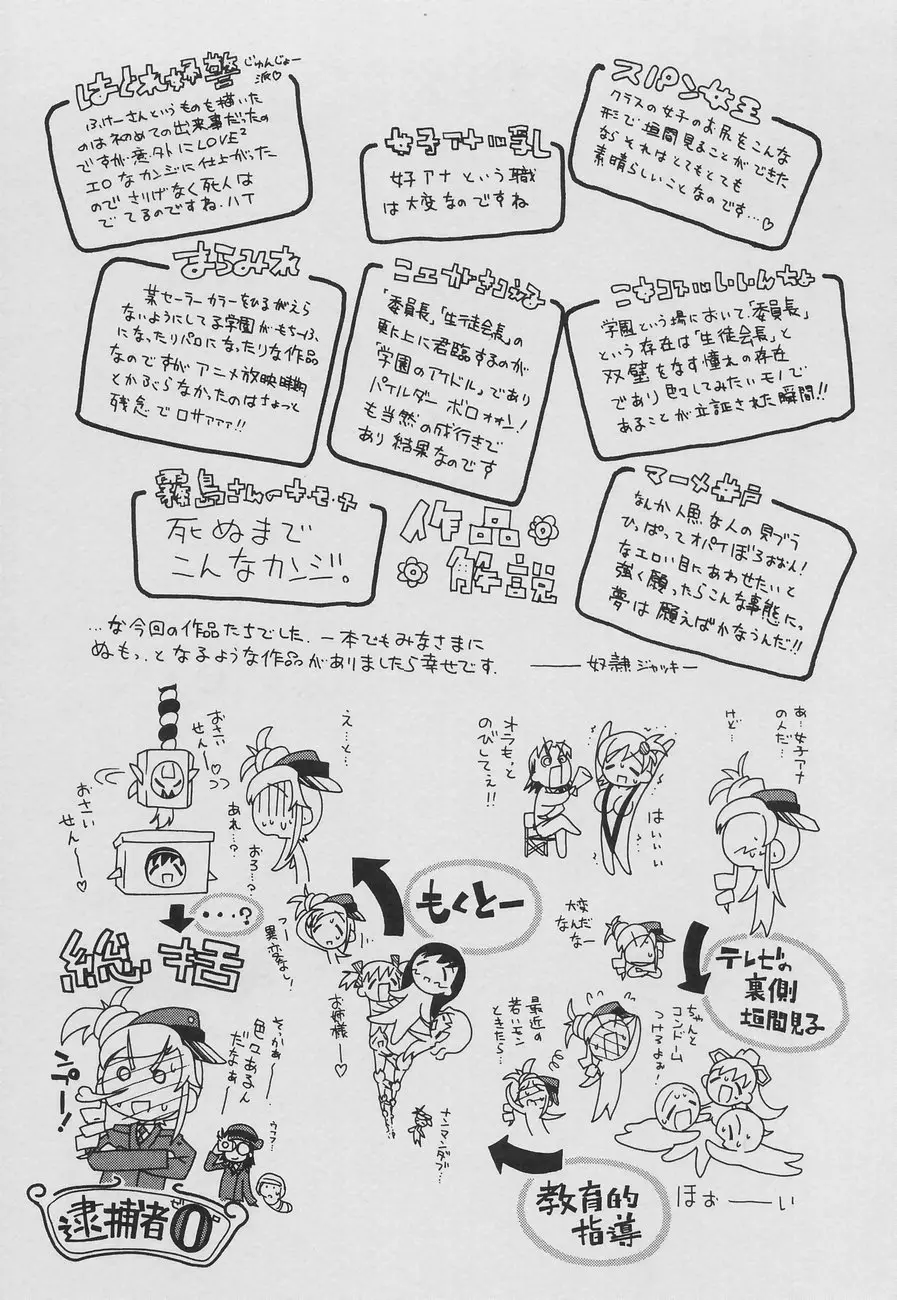 はぐれ好警
じゅんじょー派♡
ふけーさんというものを描いた
のは初めての出来事だったの
ですが意外にLOVE²
エロなカンジに仕上がった
のでさりげなく死人は
でてるのですね.ハイ
女子アナ心乳し
好アナという職
は大変なのですね
スパン女王
クラスの女子のお尻をこんな
形で垣間見ることができた
ならそれはとてもとても
素晴らしいことなのです…♡
まらみれ
某セーラーカラーをひるがえら
ないようにしてる学園がもちーふ
になったりパロになったりな作品
なのですがアニメ放映時期
とかぶらなかったのはちょっと
残念でロサァァァ!!
コエがきこえる
「委員長」「生徒会長」の
更に上に君臨するのが
「学園のアイドル」であり
パイルダー ボロォォン!
も当然の成行きで
あり結果なのです
こすコスいいんちょ
学園という場において「委員長」
という存在は「生徒会長」と
双璧をなす憧れの存在
であり色々してみたいモノで
あることが立証された瞬間!!
霧島さんのキ・モ・チ
死ぬまで
こんなカンジ。
作品
解説
マーメ井戸
なんか人魚な人の貝ブラ
ひっぱってオパイぼろおおん!
なエロい目にあわせたいと
強く願ったらこんな事態にっ
夢は願えばかなうんだ!!
…な今回の作品たちでした.一本でもみなさまに
ぬもっ.となるような作品がありましたら幸せです.
——奴隷ジャッキー
あ…女子アナ
のんだ…
けど…
オラもっと
のびしてぇ!!
はいいい
え…と…
おさい
せんー♡
おさい
せんー♡
あれ…?
おろ…?
…?
もくとー
つー
異変なし!
お姉様ー♡
ナンマンダブ…
大変だな
なんなー
テレビの
裏側
垣間見子
ちゃんと
コンドーム
つけるよぉ!
最近の
若いモン
ときたら…
教育的
指導
ほぉーーい
総括
そっかぁー
色々あるん
だなぁー
ウフフ…
パプー!
逮捕者0
ゼロ